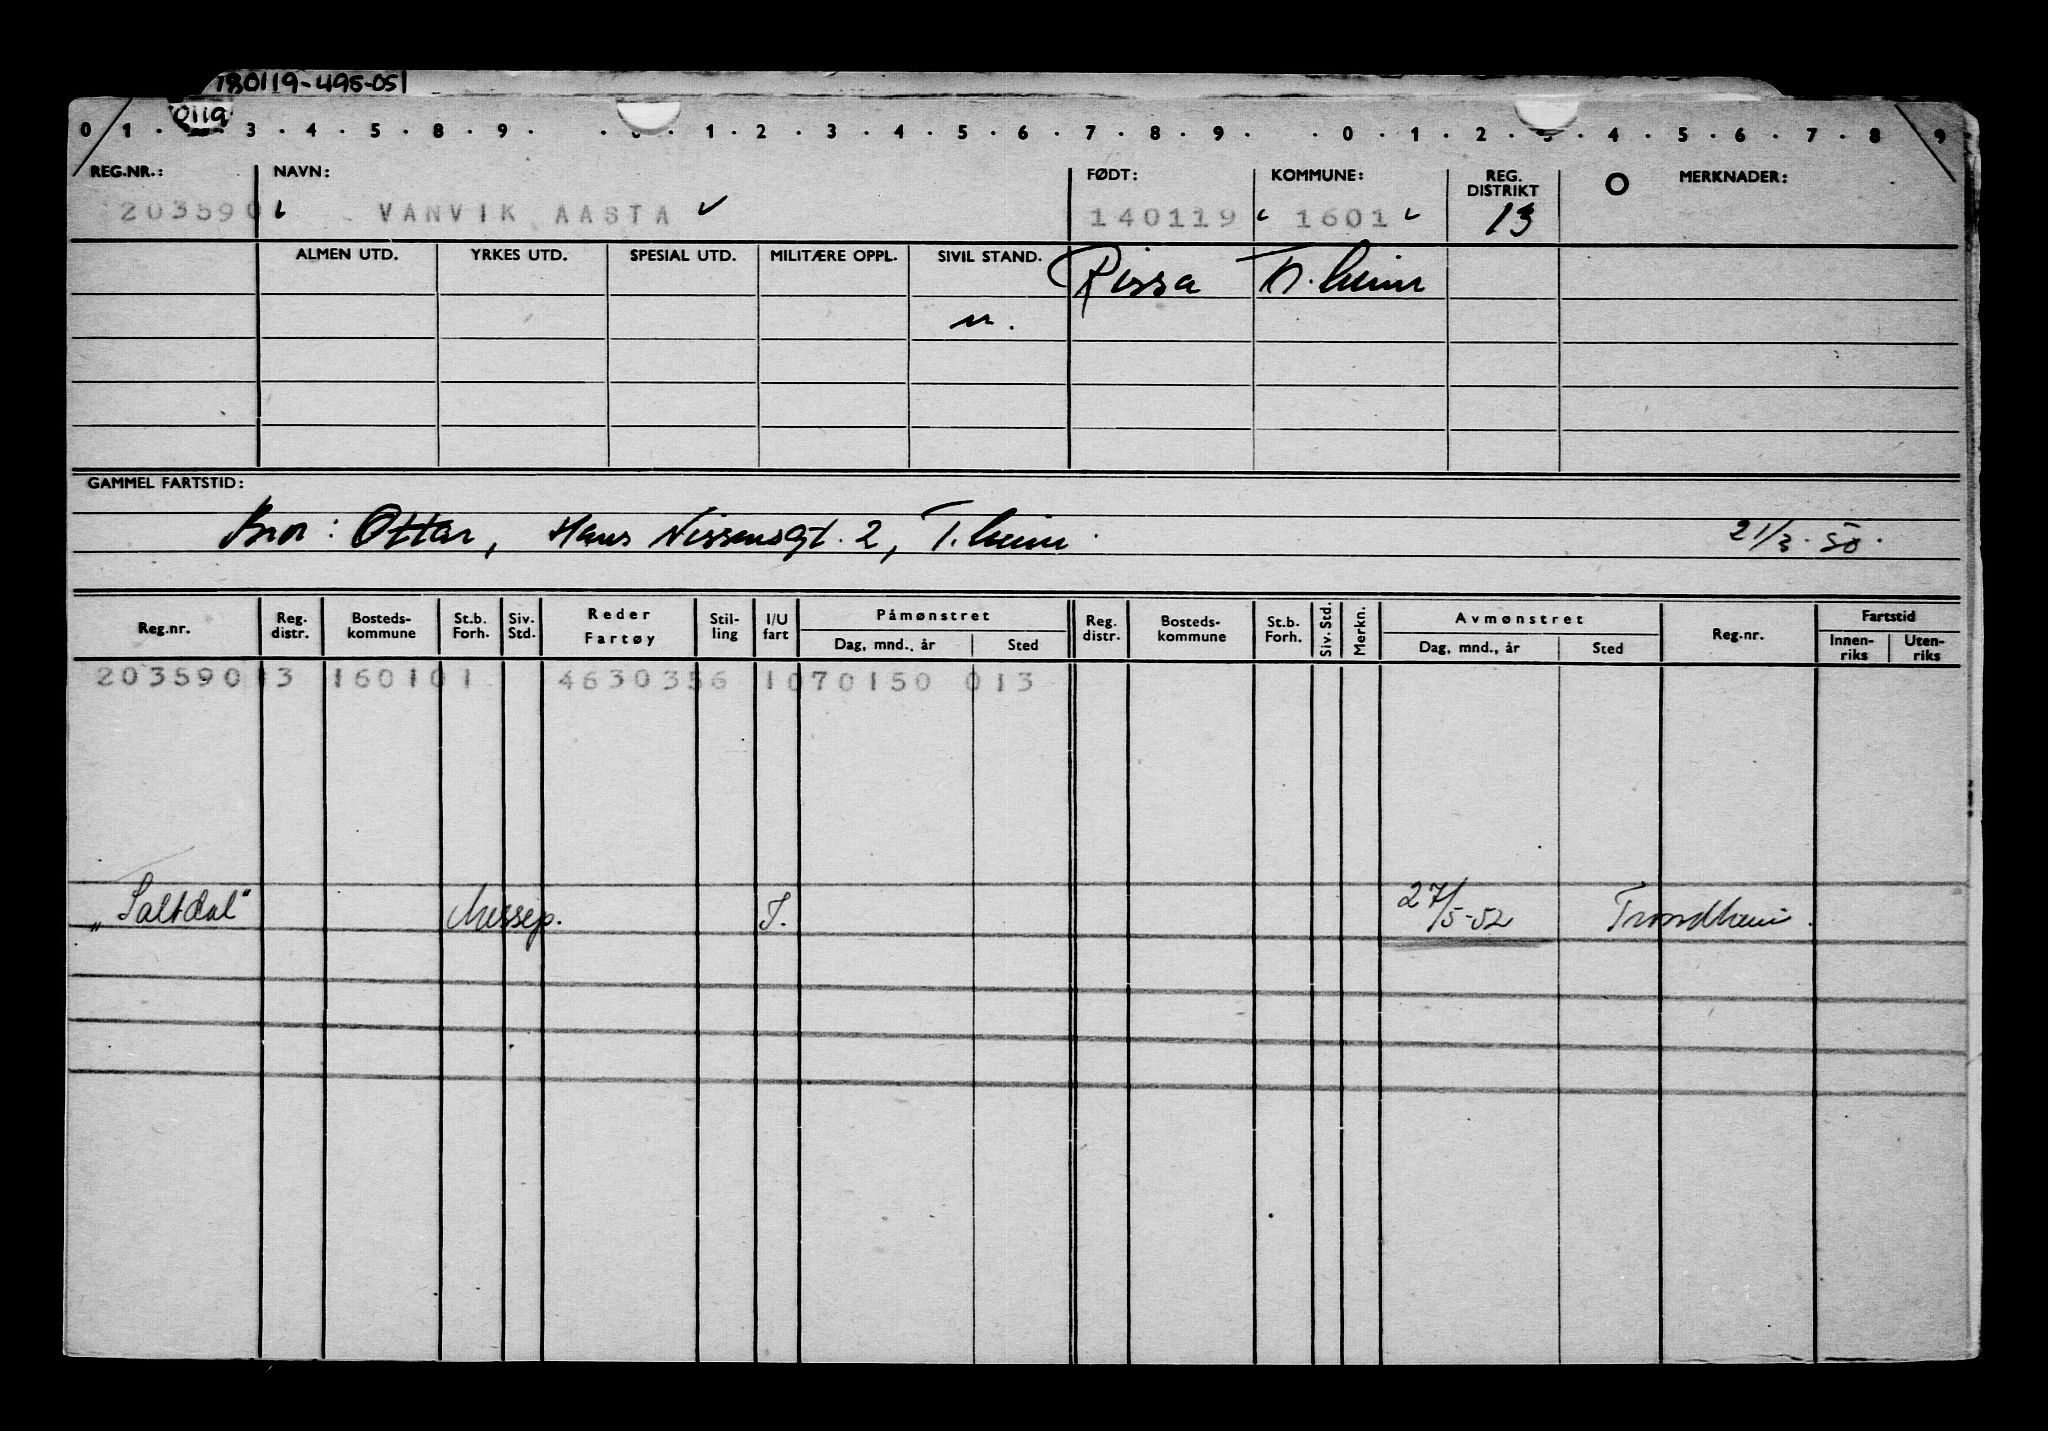 180119-495-051
0119
0 1 · 3 · 4 · 5 · 8 · 9 · · 0 · 1 · 2 · 3 · 4 · 5 · 6 · 7 · 8 · 9 · · 0 · 1 · 2 · 3 · 4 · 5 · 6 · 7 · 8 · 9
REG.NR.: NAVN: FØDT: KOMMUNE: REG. DISTRIKT MERKNADER:
203590 VANVIK AASTA 140119 1601 13
ALMEN UTD. YRKES UTD. SPESIAL UTD. MILITÆRE OPPL. SIVIL STAND. Rissa Tr.heim
u.
GAMMEL FARTSTID:
Bror: Ottar, Hans Nissensgt. 2, T.heim 21/3-50.
Reg.nr. Reg. distr. Bosteds- kommune St.b. Forh. Siv. Std. Reder Fartøy Stil- ling I/U fart Påmønstret Dag, mnd., år Sted Reg. distr. Bosteds- kommune St.b. Forh. Siv. Std. Merkn. Avmønstret Dag, mnd., år Sted Reg.nr. Fartstid Innen- riks Uten- riks
203590 13 160101 4630356 1070150 013
„Saltdal" Messep. I. 27/5-52 Trondheim.